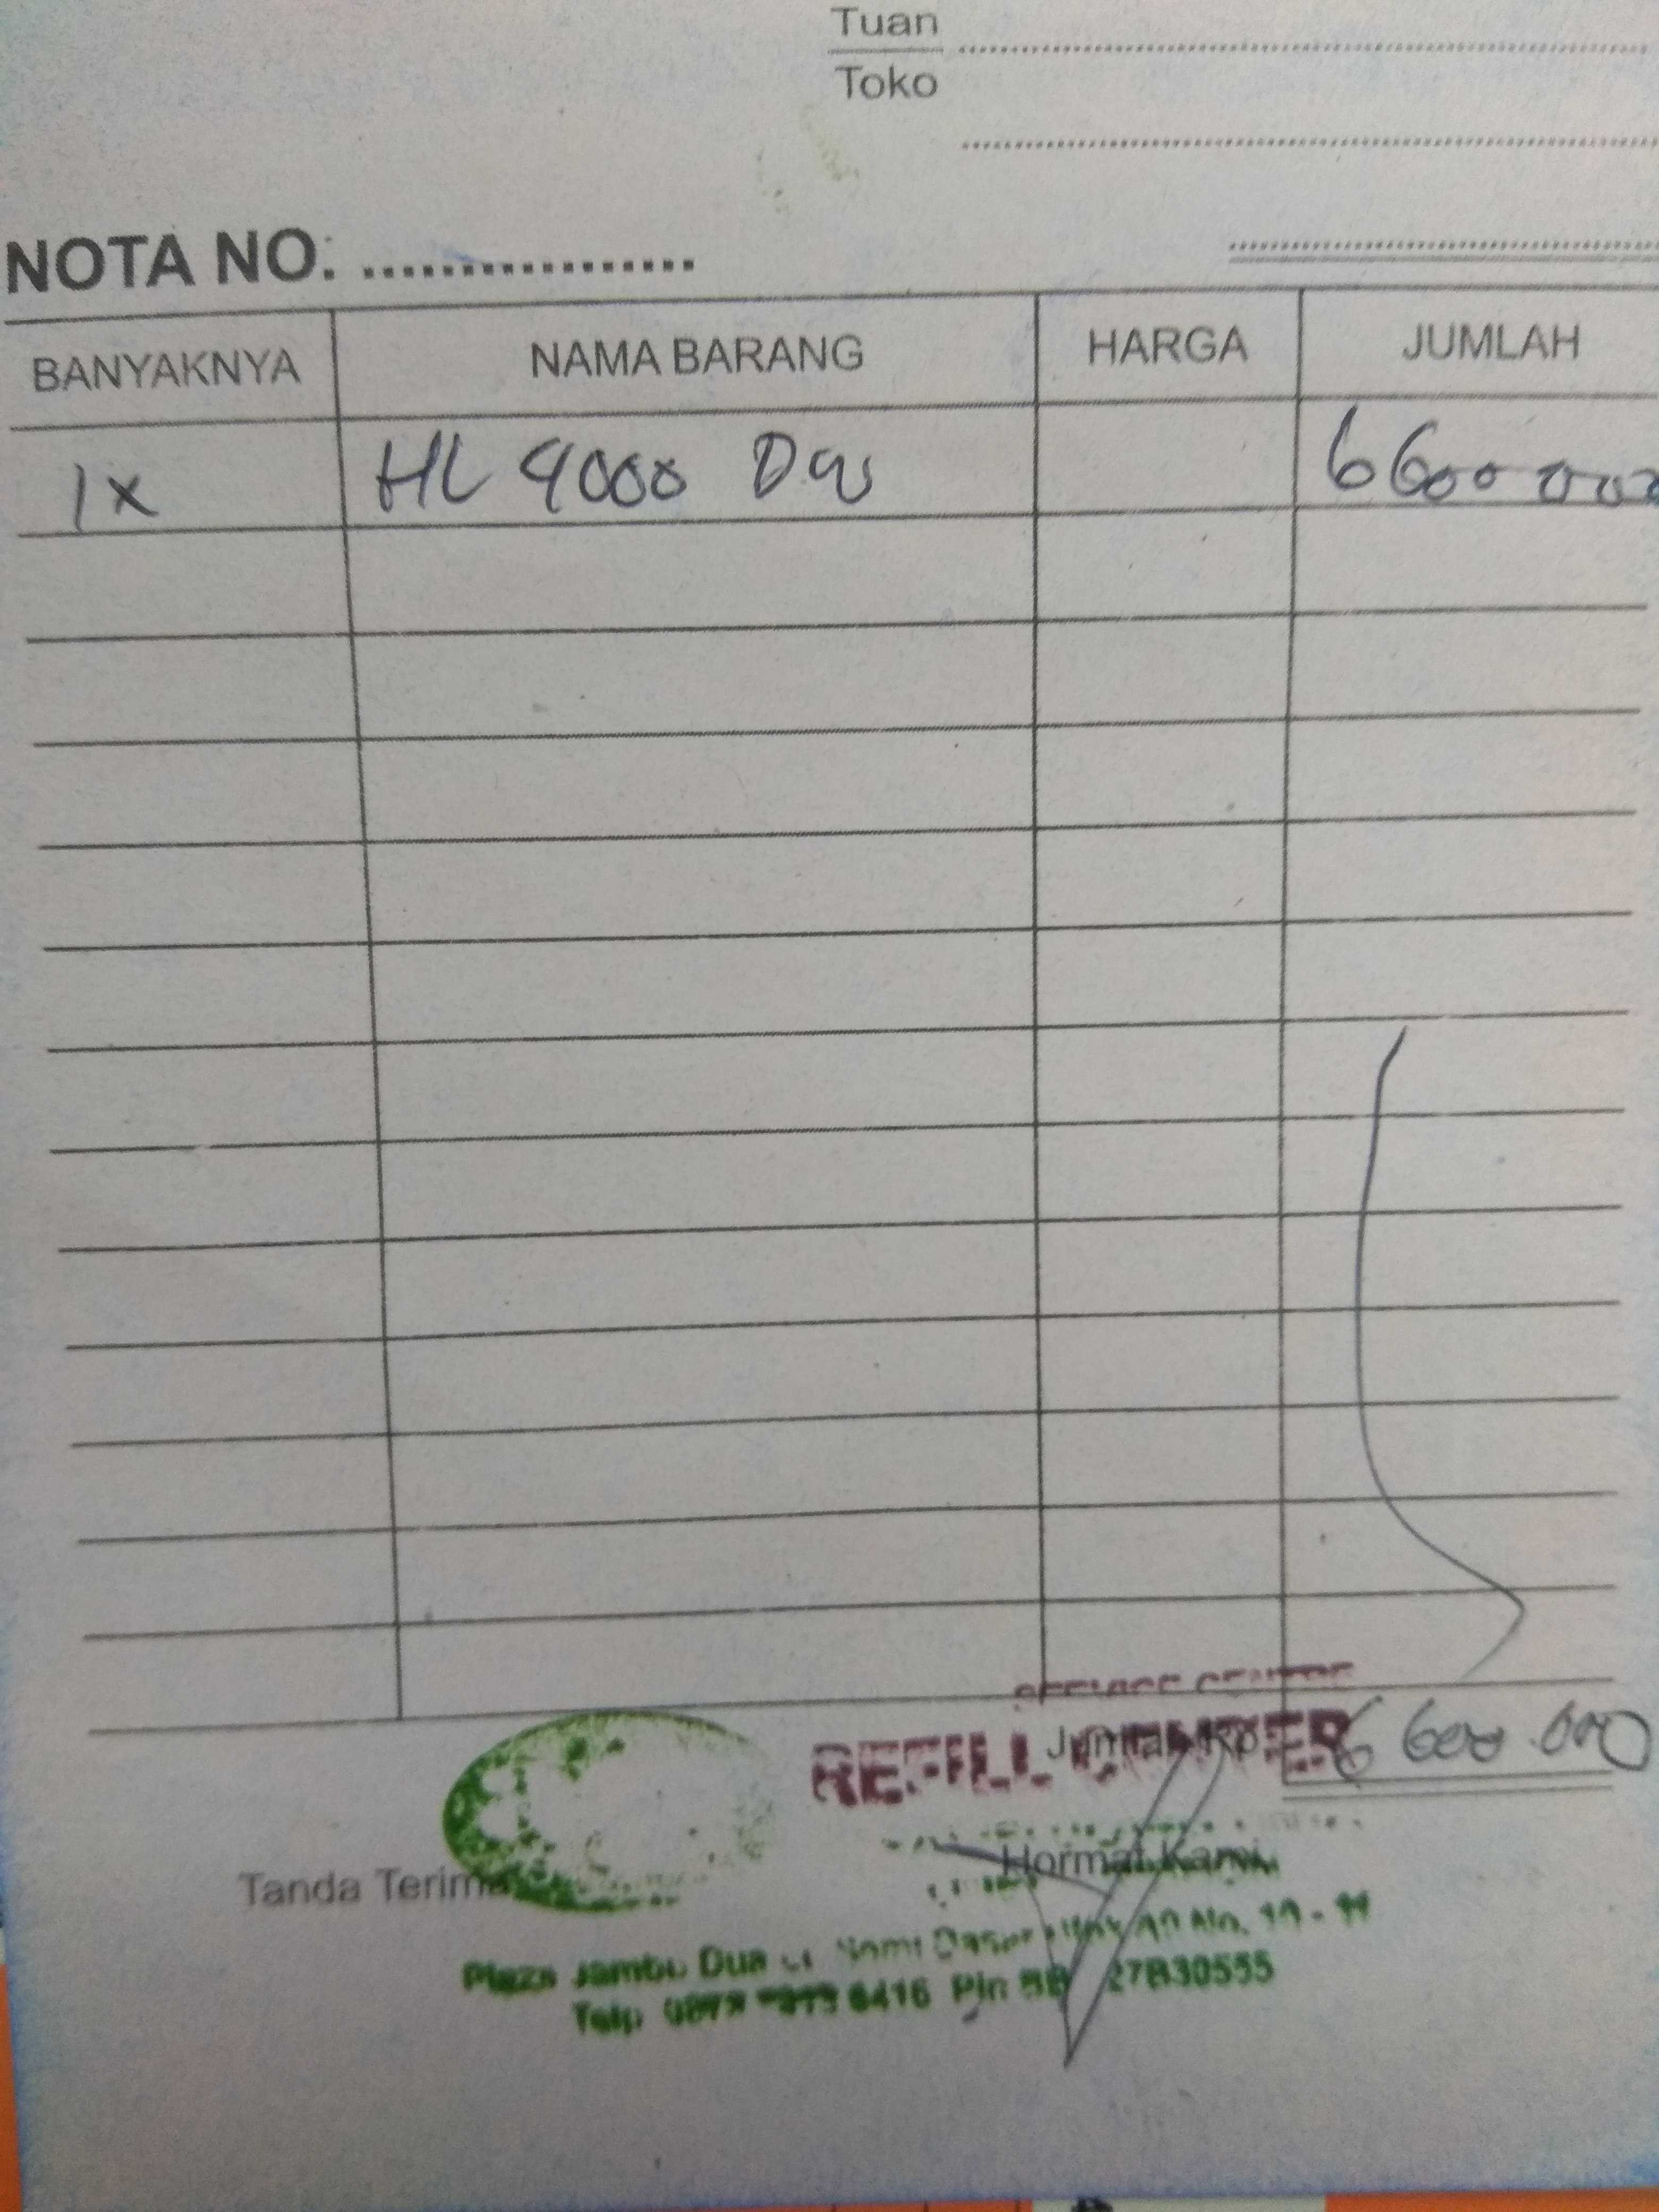 Tuan
Toko
NOTA NO. ..................
BANYAKNYA NAMA BARANG HARGA JUMLAH
1x HL 4000 DW 6600 000
REFILL CENTER
Jumlah Rp. 6 600 000
Tanda Terima Hormat Kami,
Plaza Jambu Dua No. 10 - 11
Telp 6416 Pin BB 27B30555